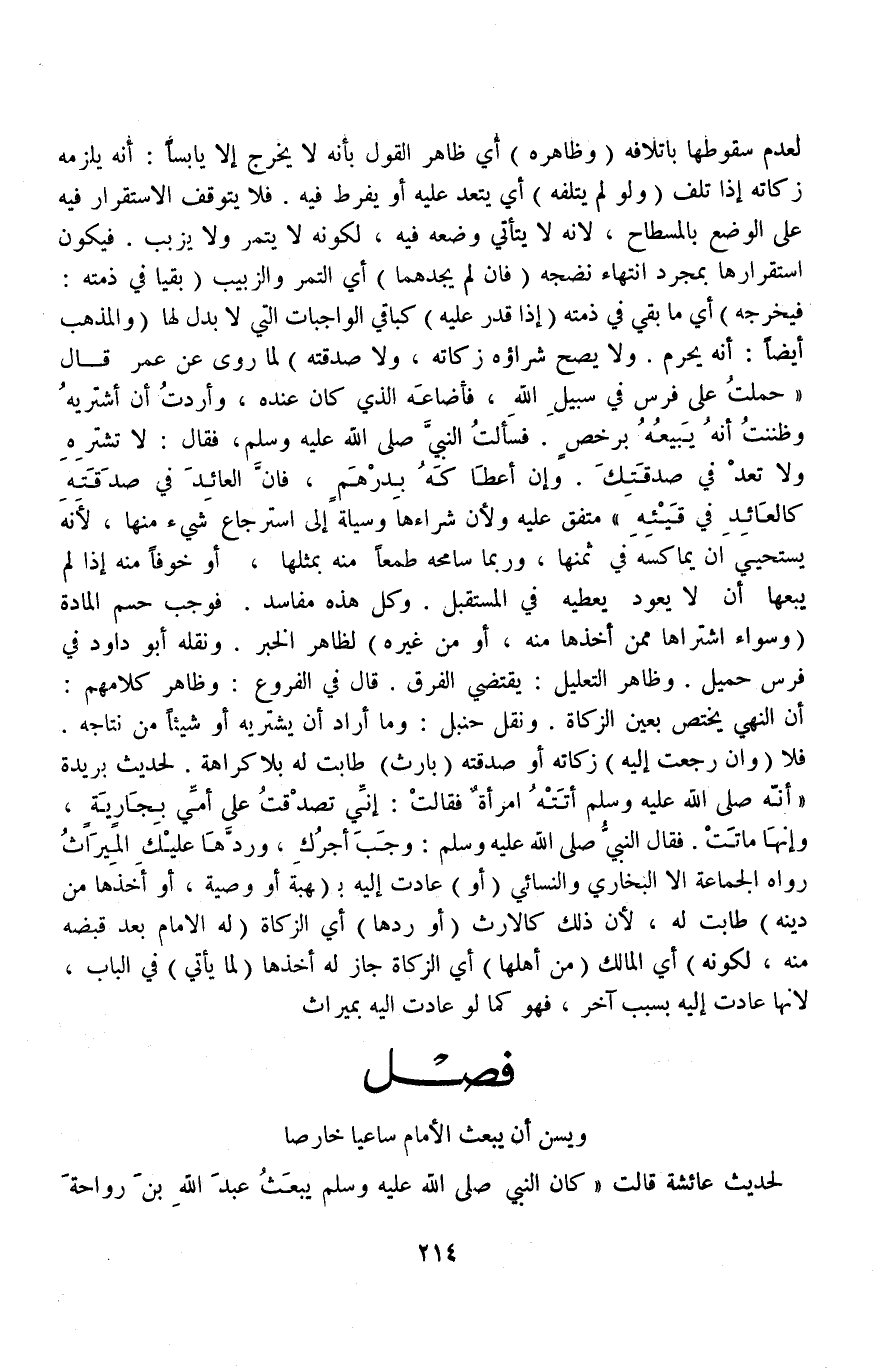 لعدم سقوطها باتلافه ( وظاهره ) أي ظاهر القول بأنه لا يخرج إلا يابساً : أنه يلزمه
زكاته إذا تلف ( ولو لم يتلفه ) أي يتعد عليه أو يفرط فيه . فلا يتوقف الاستقرار فيه
على الوضع بالمسطاح ، لانه لا يتأتي وضعه فيه ، لكونه لا يتمر ولا يزبب . فيكون
استقرارها بمجرد انتهاء نضجه ( فان لم يجدهما ) أي التمر والزبيب ( بقيا في ذمته :
فيخرجه ) أي ما بقي في ذمته ( إذا قدر عليه ) كباقي الواجبات التي لا بدل لها ( والمذهب
أيضاً : أنه يحرم . ولا يصح شراؤه زكاته ، ولا صدقته ) لما روى عن عمر قـــال
« حملتُ على فرس في سبيلِ اللهِ ، فأضاعَه الذي كان عنده ، وأردتُ أن أشتريهُ
وظننتُ أنهُ يَبيعُهُ برخصٍ . فسألتُ النبيَّ صلى الله عليه وسلم، فقال : لا تشترِهِ
ولا تعدْ في صدقَتِكَ . وإن أعطَا كَهُ بِدرْهَمٍ ، فانَّ العائِدَ في صدَقَتِهِ
كالعَائِدِ في قَيْئِهِ » متفق عليه ولأن شراءها وسيلة إلى استرجاع شيء منها ، لأنه
يستحيي ان يماكسه في ثمنها ، وربما سامحه طمعاً منه بمثلها ، أو خوفاً منه إذا لم
يبعها أن لا يعود يعطيه في المستقبل . وكل هذه مفاسد . فوجب حسم المادة
( وسواء اشتراها ممن أخذها منه ، أو من غيره ) لظاهر الخبر . ونقله أبو داود في
فرس حميل . وظاهر التعليل : يقتضي الفرق . قال في الفروع : وظاهر كلامهم :
أن النهي يختص بعين الزكاة . ونقل حنبل : وما أراد أن يشتريه أو شيئاً من نتاجه .
فلا ( وان رجعت إليه ) زكاته أو صدقته ( بارث ) طابت له بلا كراهة . لحديث بريدة
« أنّه صلى الله عليه وسلم أتَتْهُ امرأةٌ فقالتْ : إنّي تصدّقتُ على أمّي بِجَاريَةٍ ،
وإنهَا ماتَتْ . فقال النبيُّ صلى الله عليه وسلم : وجَبَ أجرُكِ ، وردَّهَا عليْكِ المِيرَاثُ
رواه الجماعة الا البخاري والنسائي ( أو ) عادت إليه بـ ( هبة أو وصية ، أو أخذها من
دينه ) طابت له ، لأن ذلك كالارث ( أو ردها ) أي الزكاة ( له الامام بعد قبضه
منه ، لكونه ) أي المالك ( من أهلها ) أي الزكاة جاز له أخذها ( لما يأتي ) في الباب ،
لانها عادت إليه بسبب آخر ، فهو كما لو عادت اليه بميراث
فصــل
ويسن أن يبعث الأمام ساعيا خارصا
لحديث عائشة قالت « كان النبي صلى الله عليه وسلم يبعَثُ عبدَ اللهِ بنَ رواحةَ
٢١٤